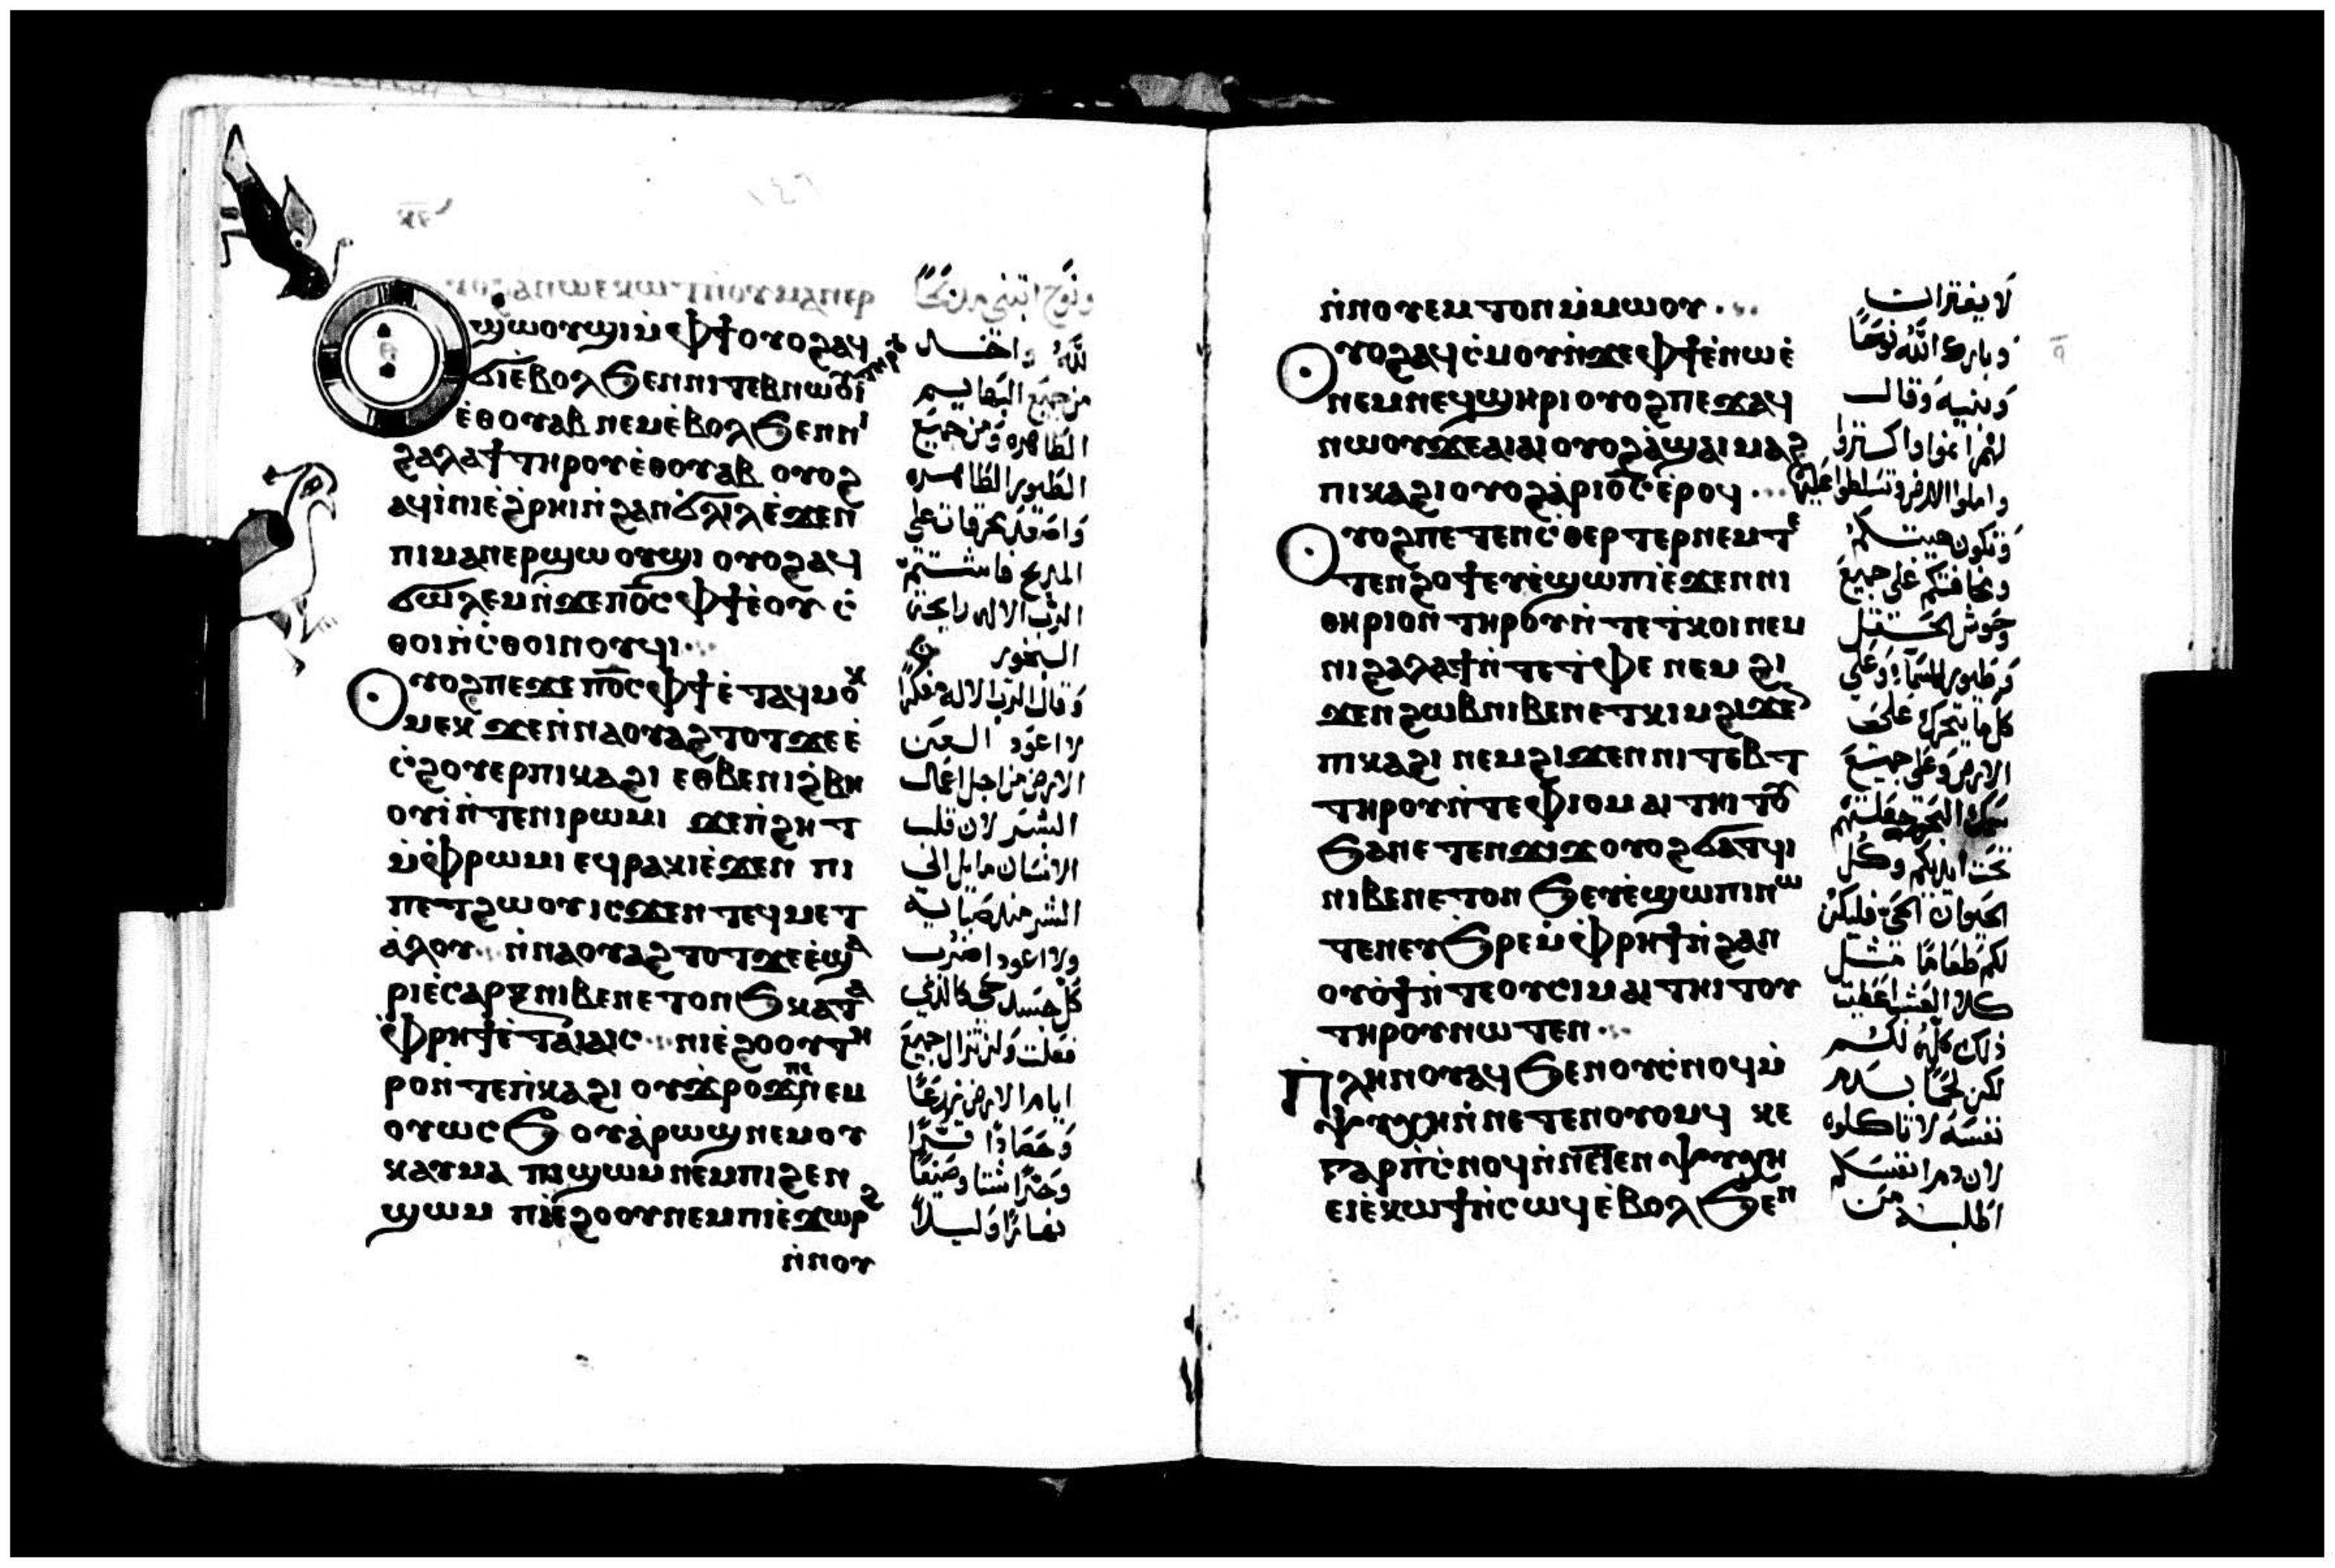 ⲩⲟϩ ⲁ ⲛⲱⲉ ⲕⲱⲧ ⲛ̀ⲟⲩⲙⲁⲛⲉⲣ
ϣⲱⲟⲩϣⲓ ⲙ̀ⲫϯ ⲟⲩⲟϩ ⲁϥ
ϭⲓ ⲉ̀ⲃⲟⲗϧⲉⲛ ⲛⲓⲧⲉⲃⲛⲱⲟⲩⲓ̀
ⲉ̀ⲑⲟⲩⲁⲃ ⲛⲉⲙ ⲉ̀ⲃⲟⲗϧⲉⲛ ⲛⲓ
ϩⲁⲗⲁϯ ⲧⲏⲣⲟⲩ ⲉ̀ⲑⲟⲩⲁⲃ ⲟⲩⲟϩ
ⲁϥⲓ̀ⲛⲓ ⲉ̀ϩⲣⲏⲓ ⲛ̀ϩⲁⲛϭⲗⲓⲗ ⲉ̀ϫⲉⲛ
ⲡⲓⲙⲁⲛⲉⲣϣⲱⲟⲩϣⲓ ⲟⲩⲟϩ ⲁϥ
ϭⲱⲗⲉⲙ ⲛ̀ϫⲉ ⲡⲟ̅ⲥ̅ ⲫϯ ⲉ̀ⲟⲩⲥ̀
ⲑⲟⲓ ⲛ̀ⲥ̀ⲑⲟⲓⲛⲟⲩϥⲓ
ⲟⲩⲟϩ ⲡⲉϫⲉ ⲡⲟ̅ⲥ̅ ⲫϯ ⲉ̀ⲧⲁϥⲙⲟⲕ
ⲙⲉⲕ ϫⲉ ⲛ̀ⲛⲁⲟⲩⲁϩⲧⲟⲧ ϫⲉ ⲉ̀
ⲥ̀ϩⲟⲩⲉⲣ ⲡⲓⲕⲁϩⲓ ⲉⲑⲃⲉ ⲛⲓϩ̀ⲃⲏ
ⲟⲩⲓ̀ ⲛ̀ⲧⲉ ⲛⲓⲣⲱⲙⲓ ϫⲉ ⲡ̀ϩⲏⲧ
ⲙ̀ⲫ̀ⲣⲱⲙⲓ ⲉϥⲣⲁⲕⲓ ⲉ̀ϫⲉⲛ ⲡⲓ
ⲡⲉⲧϩⲱⲟⲩ ⲓⲥϫⲉⲛ ⲧⲉϥⲙⲉⲧ
ⲁ̀ⲗⲟⲩ ⲛ̀ⲛⲁⲟⲩⲁϩⲧⲟⲧ ϫⲉ ⲉ̀ϣⲁ
ⲣⲓ ⲉ̀ⲥⲁⲣⲝ ⲛⲓⲃⲉⲛ ⲉⲧⲟⲛϧ ⲕⲁⲧⲁ
ⲫ̀ⲣⲏϯ ⲉ̀ⲧⲁⲓⲁⲓⲥ ⲛⲓⲉ̀ϩⲟⲟⲩ ⲧⲏ
ⲣⲟⲩ ⲛ̀ⲧⲉ ⲡ̀ⲕⲁϩⲓ ⲟⲩϫ̀ⲣⲟϫ ⲛⲉⲙ
ⲟⲩⲱⲥϧ ⲟⲩⲁ̀ⲣⲱϣ ⲛⲉⲙ ⲟⲩ
ⲕⲁⲩⲙⲁ ⲡⲓϣⲱⲙ ⲛⲉⲙ ⲡⲓϩⲉⲛ
ϣⲱⲙ ⲡⲓⲉ̀ϩⲟⲟⲩ ⲛⲉⲙ ⲡⲓⲉ̀ϫⲱⲣϩ
ⲛ̀ⲛⲟⲩ
ونوح ابتنى مذبحًا
لله واخذ
من جميع البهايم
الطاهره ومن جميع
الطيور الطاهره
واصعد محرقات على
المذبح فاشتم
الرب الاله رايحة
البخور
وقال الرب الاله مفكرًا
لا اعود العن
الارض من اجل اعمال
البشر لان قلب
الانسان مايل الى
الشر منذ صبايه
ولا اعود اضرب
كل جسد حي كالذي
فعلت ولن تزال جميع
ايام الارض زرعًا
وحصادًا بردًا
وحرًا شتا وصيفًا
نهارًا وليلاً
ⲛ̀ⲛⲟⲩⲉⲙⲧⲟⲛ ⲙ̀ⲙⲱⲟⲩ
ⲟⲩⲟϩ ⲁϥⲥ̀ⲙⲟⲩ ⲛ̀ϫⲉ ⲫϯ ⲉ̀ⲛⲱⲉ̀
ⲛⲉⲙ ⲛⲉϥϣⲏⲣⲓ ⲟⲩⲟϩ ⲡⲉϫⲁϥ
ⲛⲱⲟⲩ ϫⲉ ⲁⲓⲁⲓ ⲟⲩⲟϩ ⲁ̀ϣⲁⲓ ⲙⲁϩ
ⲡⲓⲕⲁϩⲓ ⲟⲩⲟϩ ⲁ̀ⲣⲓⲟ̅ⲥ̅ ⲉ̀ⲣⲟϥ
ⲟⲩⲟϩ ⲡⲉⲧⲉⲛⲥ̀ⲑⲉⲣⲧⲉⲣ ⲛⲉⲙ ⲧⲉ
ⲧⲉⲛϩⲟϯ ⲉⲩⲉ̀ϣⲱⲡⲓ ⲉ̀ϫⲉⲛ ⲛⲓ
ⲑⲏⲣⲓⲟⲛ ⲧⲏⲣⲟⲩ ⲛ̀ⲧⲉ ⲧ̀ⲕⲟⲓ ⲛⲉⲙ
ⲛⲓϩⲁⲗⲁϯ ⲛ̀ⲧⲉ ⲧ̀ⲫⲉ ⲛⲉⲙ ϩⲓ
ϫⲉⲛ ϩⲱⲃ ⲛⲓⲃⲉⲛ ⲉⲧⲕⲓⲙ ϩⲓϫⲉⲛ
ⲡⲓⲕⲁϩⲓ ⲛⲉⲙ ϩⲓϫⲉⲛ ⲛⲓⲧⲉⲃⲧ
ⲧⲏⲣⲟⲩ ⲛ̀ⲧⲉ ⲫⲓⲟⲙ ⲁⲓⲧⲏⲓⲧⲟⲩ
ϧⲁ ⲛⲉⲧⲉⲛϫⲓϫ ⲟⲩⲟϩ ϭⲁⲧϥⲓ
ⲛⲓⲃⲉⲛ ⲉⲧⲟⲛϧ ⲉⲩⲉ̀ϣⲱⲡⲓ ⲛⲱ
ⲧⲉⲛ ⲉⲩϧⲣⲉ ⲙ̀ⲫ̀ⲣⲏϯ ⲛ̀ϩⲁⲛ
ⲟⲩⲟ̀ϯ ⲛ̀ⲧⲉ ⲟⲩⲥⲓⲙ ⲁⲓⲧⲏⲓⲧⲟⲩ
ⲧⲏⲣⲟⲩ ⲛⲱⲧⲉⲛ
ⲡ̀ⲗⲏⲛ ⲟⲩⲁϥ ϧⲉⲛ ⲟⲩⲥ̀ⲛⲟϥ ⲙ̀
ⲯⲩⲭⲏ ⲛ̀ⲛⲉⲧⲉⲛⲟⲩⲟⲙϥ ⲕⲉ
ⲅⲁⲣ ⲡ̀ⲥ̀ⲛⲟϥ ⲛ̀ⲛⲉⲧⲉⲛⲯⲩⲭⲏ
ⲉⲓⲉ̀ⲕⲱϯ ⲛ̀ⲥⲱϥ ⲉ̀ⲃⲟⲗϧⲉⲛ
لا يفتران
وبارك الله نوحًا
وبنيه وقال
لهم انموا واكثروا
واملوا الارض وتسلطوا عليها
وتكون هيبتكم
ومخافتكم على جميع
وحوش الحقل
وطيور السما وعلى
كل ما يتحرك على
الارض وعلى جميع
سمك البحر جعلتهم
تحت ايديكم وكل
الحيوان الحي فليكن
لكم طعامًا مثل
كلا العشب اعطيت
ذلك كله لكم
لكن لحمًا بدم
نفسه لا تاكلوه
لان دم انفسكم
اطلبه من